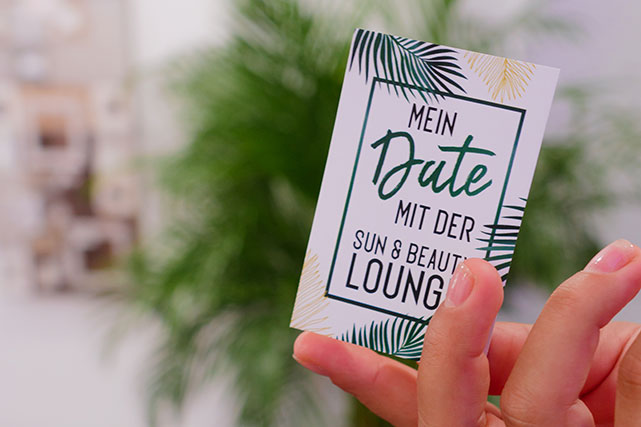 MEIN
Date
MIT DER
SUN & BEAUTY
LOUNG